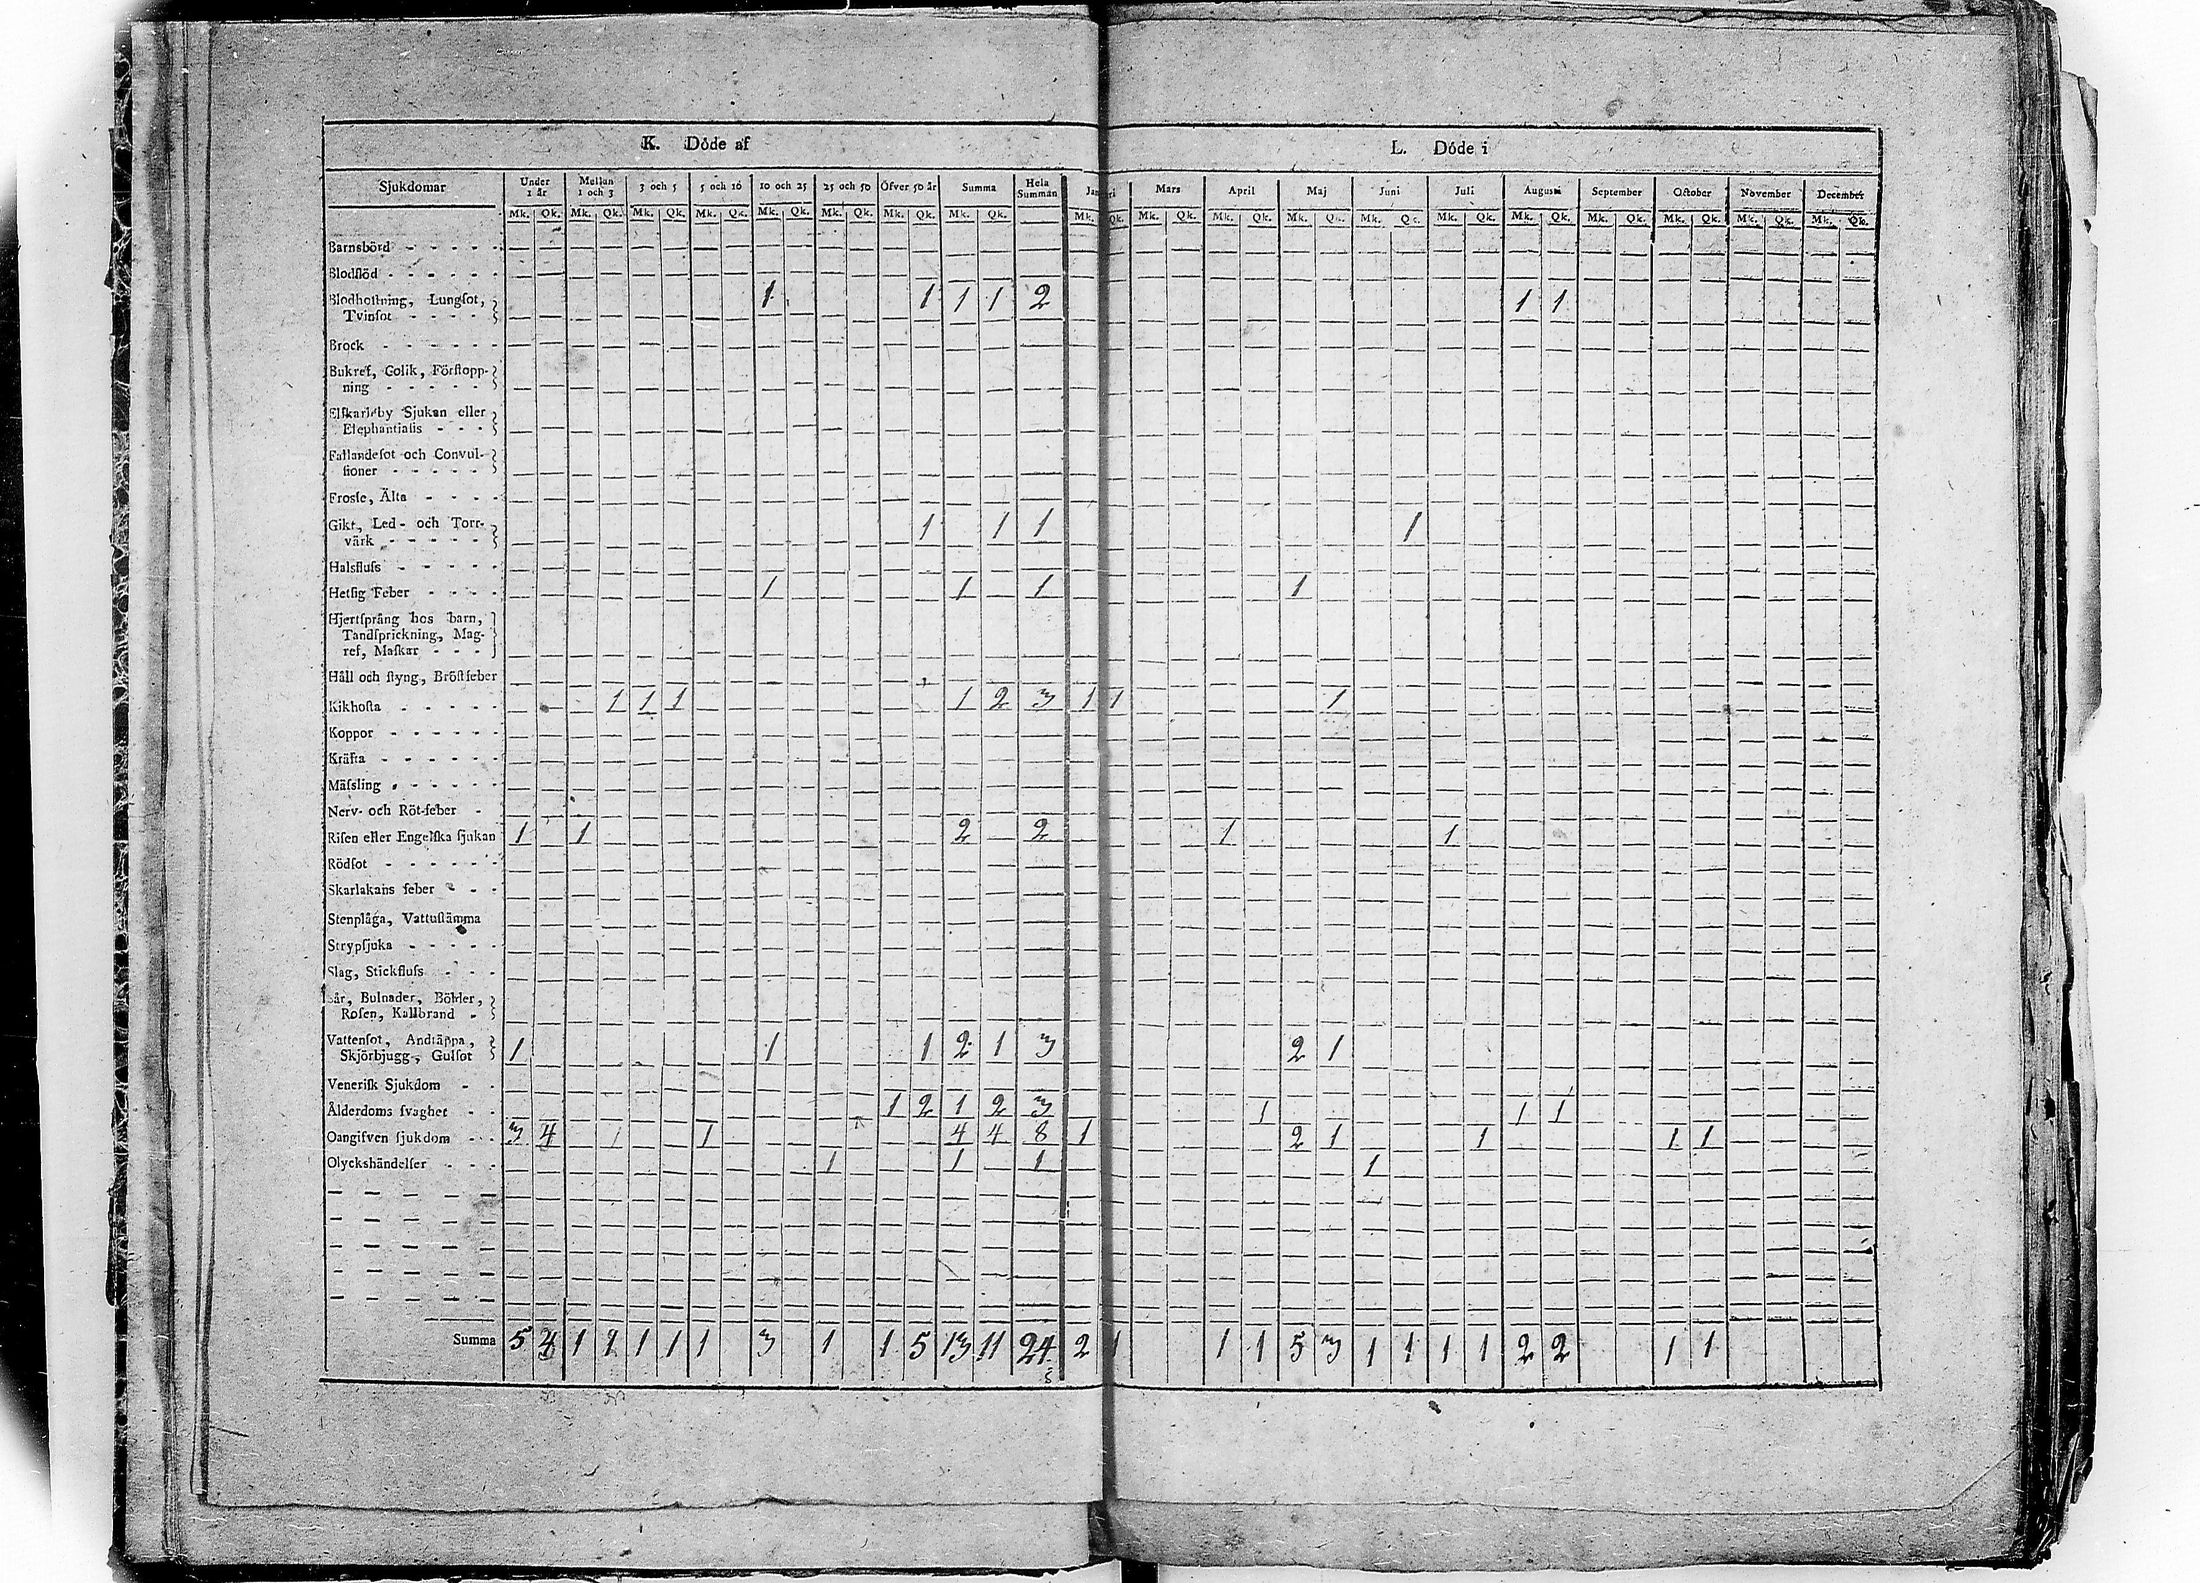 K. Döde af L. Döde i
Sjukdomar Under 1 år Mellan 1 och 3 3 och 5 5 och 10 10 och 25 25 och 50 Öfver 50 år Summa Hela Summan Mars April Maj Juni Juli Augusti September October November December
Mk. Qk. Mk. Qk. Mk. Qk. Mk. Qk. Mk. Qk. Mk. Qk. Mk. Qk. Mk. Qk. Mk. Qk. Mk. Qk. Mk. Qk. Mk. Qk. Mk. Qk. Mk. Qk. Mk. Qk. Mk. Qk. Mk. Qk. Mk. Qk. Mk. Qk.
Barnsbörd
Blodflöd
Blodhostning, Lungsot, 1 1 1 1 2 1 1
Tvinsot
Brock
Bukref, Colik, Förstopp-
ning
Elskarleby Sjukan eller
Elephantiasis
Fallandesot och Convul-
sioner
Frosse, Älta
Gikt, Led- och Torr- 1 1 1 1
värk
Halsfluss
Hetsig Feber 1 1 1 1
Hjertsprång hos barn,
Tandsprickning, Mag-
ref, Maskar
Håll och styng, Bröstfeber
Kikhosta 1 1 1 1 2 3 1 1 1
Koppor
Kräfta
Mässling
Nerv- och Röt-feber
Risen eller Engelska sjukan 1 1 2 2 1 1
Rödsot
Skarlakans feber
Stenplåga, Vattustämma
Strypsjuka
Slag, Stickfluss
Sår, Bulnader, Bölder,
Rosen, Kallbrand
Vattensot, Andtäppa,
Skjörbjugg, Gulsot 1 1 1 2 1 3 2 1
Venerisk Sjukdom
Ålderdoms svaghet 1 2 1 2 3 1 1 1
Oangifven sjukdom 3 4 1 1 4 4 8 1 2 1 1 1 1
Olyckshändelser 1 1 1 1
Summa 5 4 1 1 1 1 3 1 1 5 13 11 24 2 1 1 1 5 3 1 1 1 1 2 2 1 1